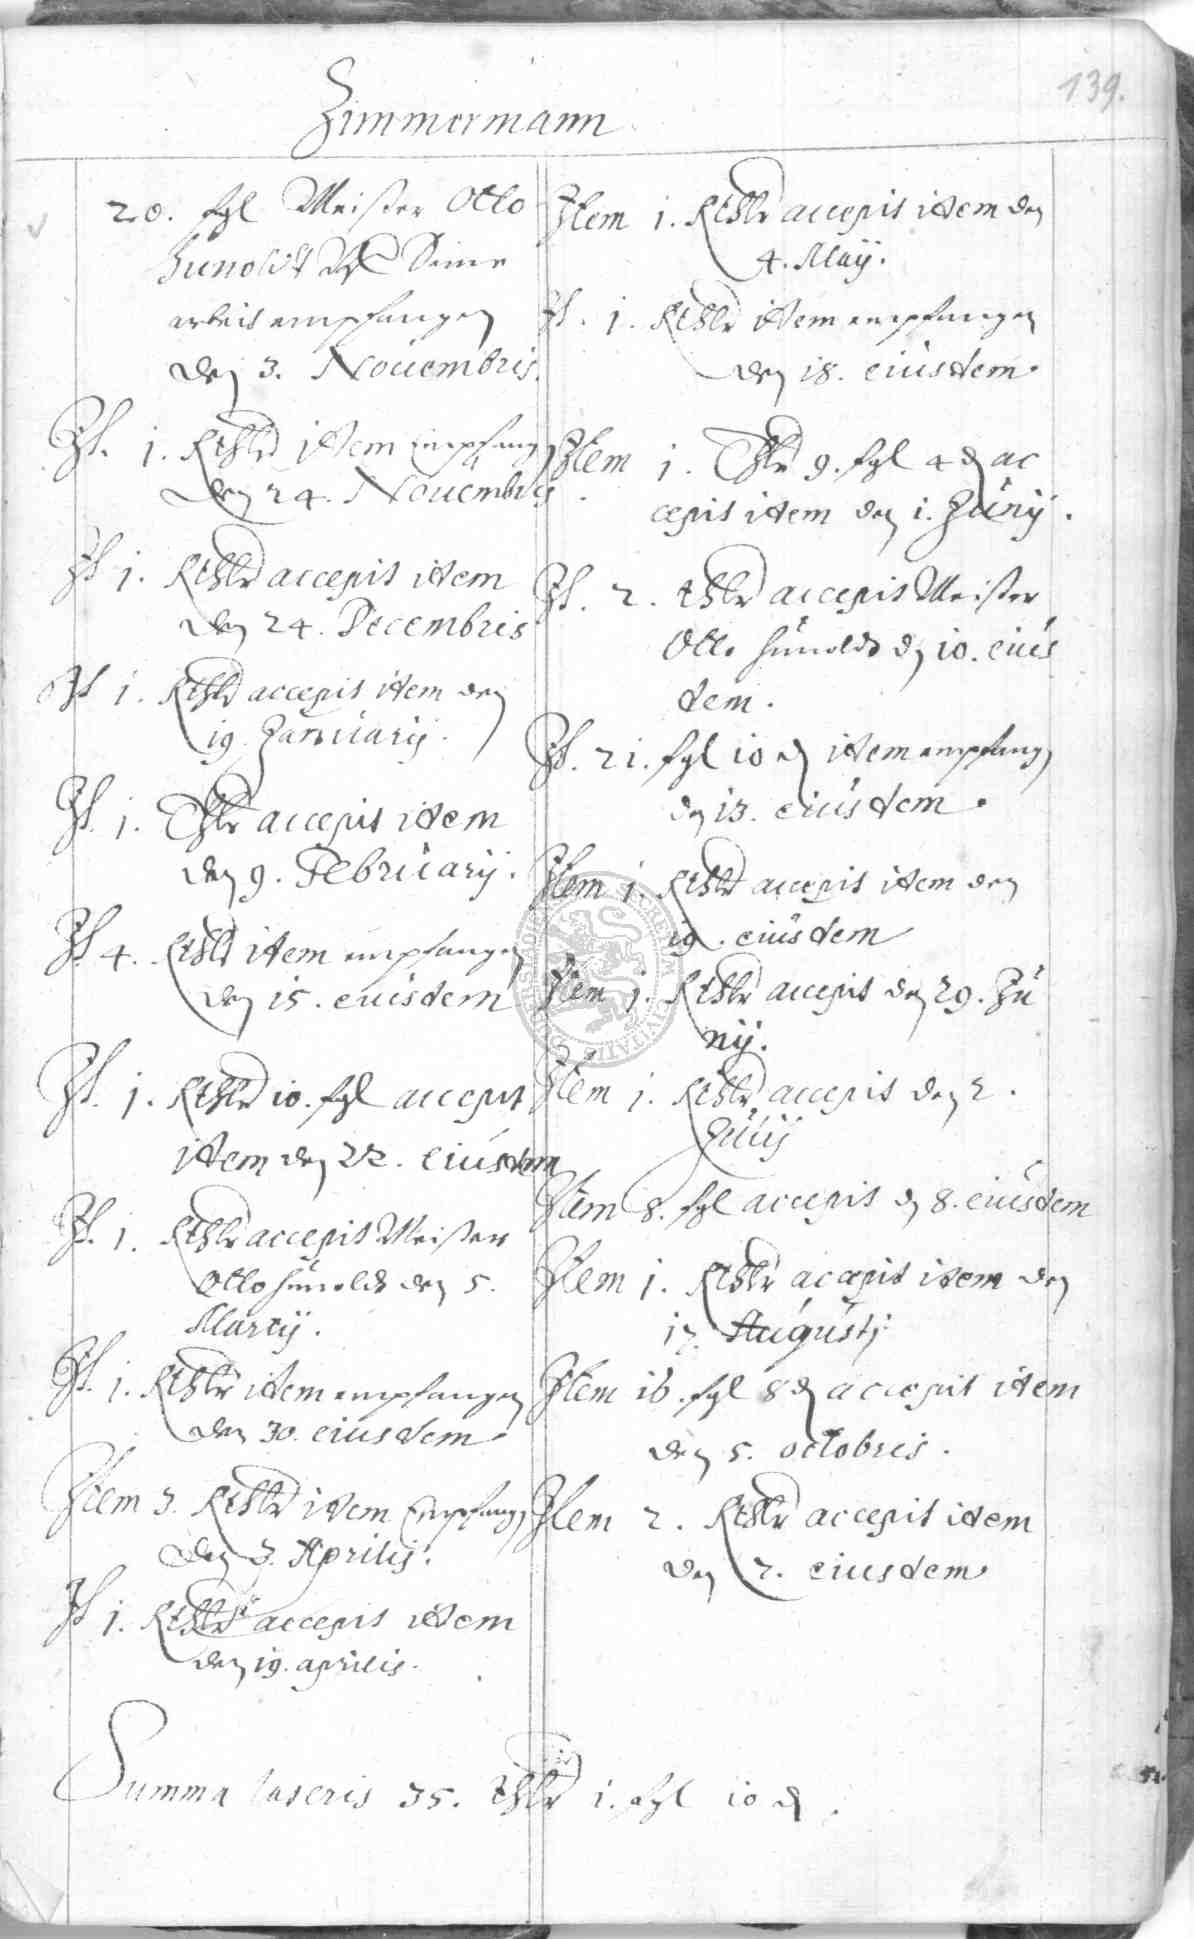 139.
Zimmermann
20. ßgl Meister Otto
Hunoldt Seine
arbeit empfangen
den 3. Nouembris.
It. 1. Rthlr item empfang
den 24. Nouembris
It 1. Rthlr accepit item
den 24. Decembris
It 1. Rthlr accepit item den
19. Januarij.
It. 1. Thlr accepit item
den 9. Februarij.
It. 4. Rthlr item empfangen
den 15. euisdem
It. 1. Rthlr 10. ßgl accepit
item den 22. eiusdem
It. 1. Rthlr accepit Meister
Otto Hunoldt den 5.
Martij.
It. 1. Rthlr item empfangen
den 30. eiusdem
Item 3. Rthlr item Empfang
den 3. Aprilis.
It 1. Rthlr accepit item
den 19. aprilis.
Item 1. Rthlr accepit item den
4. Maij.
It. 1. Rthlr item empfangen
den 18. eiusdem.
Item 1. Thlr 9. ßgl 4 ₰ ac
cepit item den 1. Junij.
It. 2. thlr accepit Meister
Otto Hunoldt d 10. eius
dem.
It. 21. ßgl 10 ₰ item empfang
den 13. eiusdem.
Item 1. Rthlr accepit item den
19. eiusdem
Item 1. Rthlr accepit den 29. Ju
nij.
Item 1. Rthlr accepit den 2.
Julij
Item 8. ßgl accepit d 8. eiusdem
Item 1. Rthlr accepit item den
17. Augustj
Item 16. ßgl 8 ₰ accepit item
den 5. octobris.
Item 2. Rthlr accepit item
den 7. eiusdem
Summa lateris 35. thlr 1. ßgl 10 ₰.